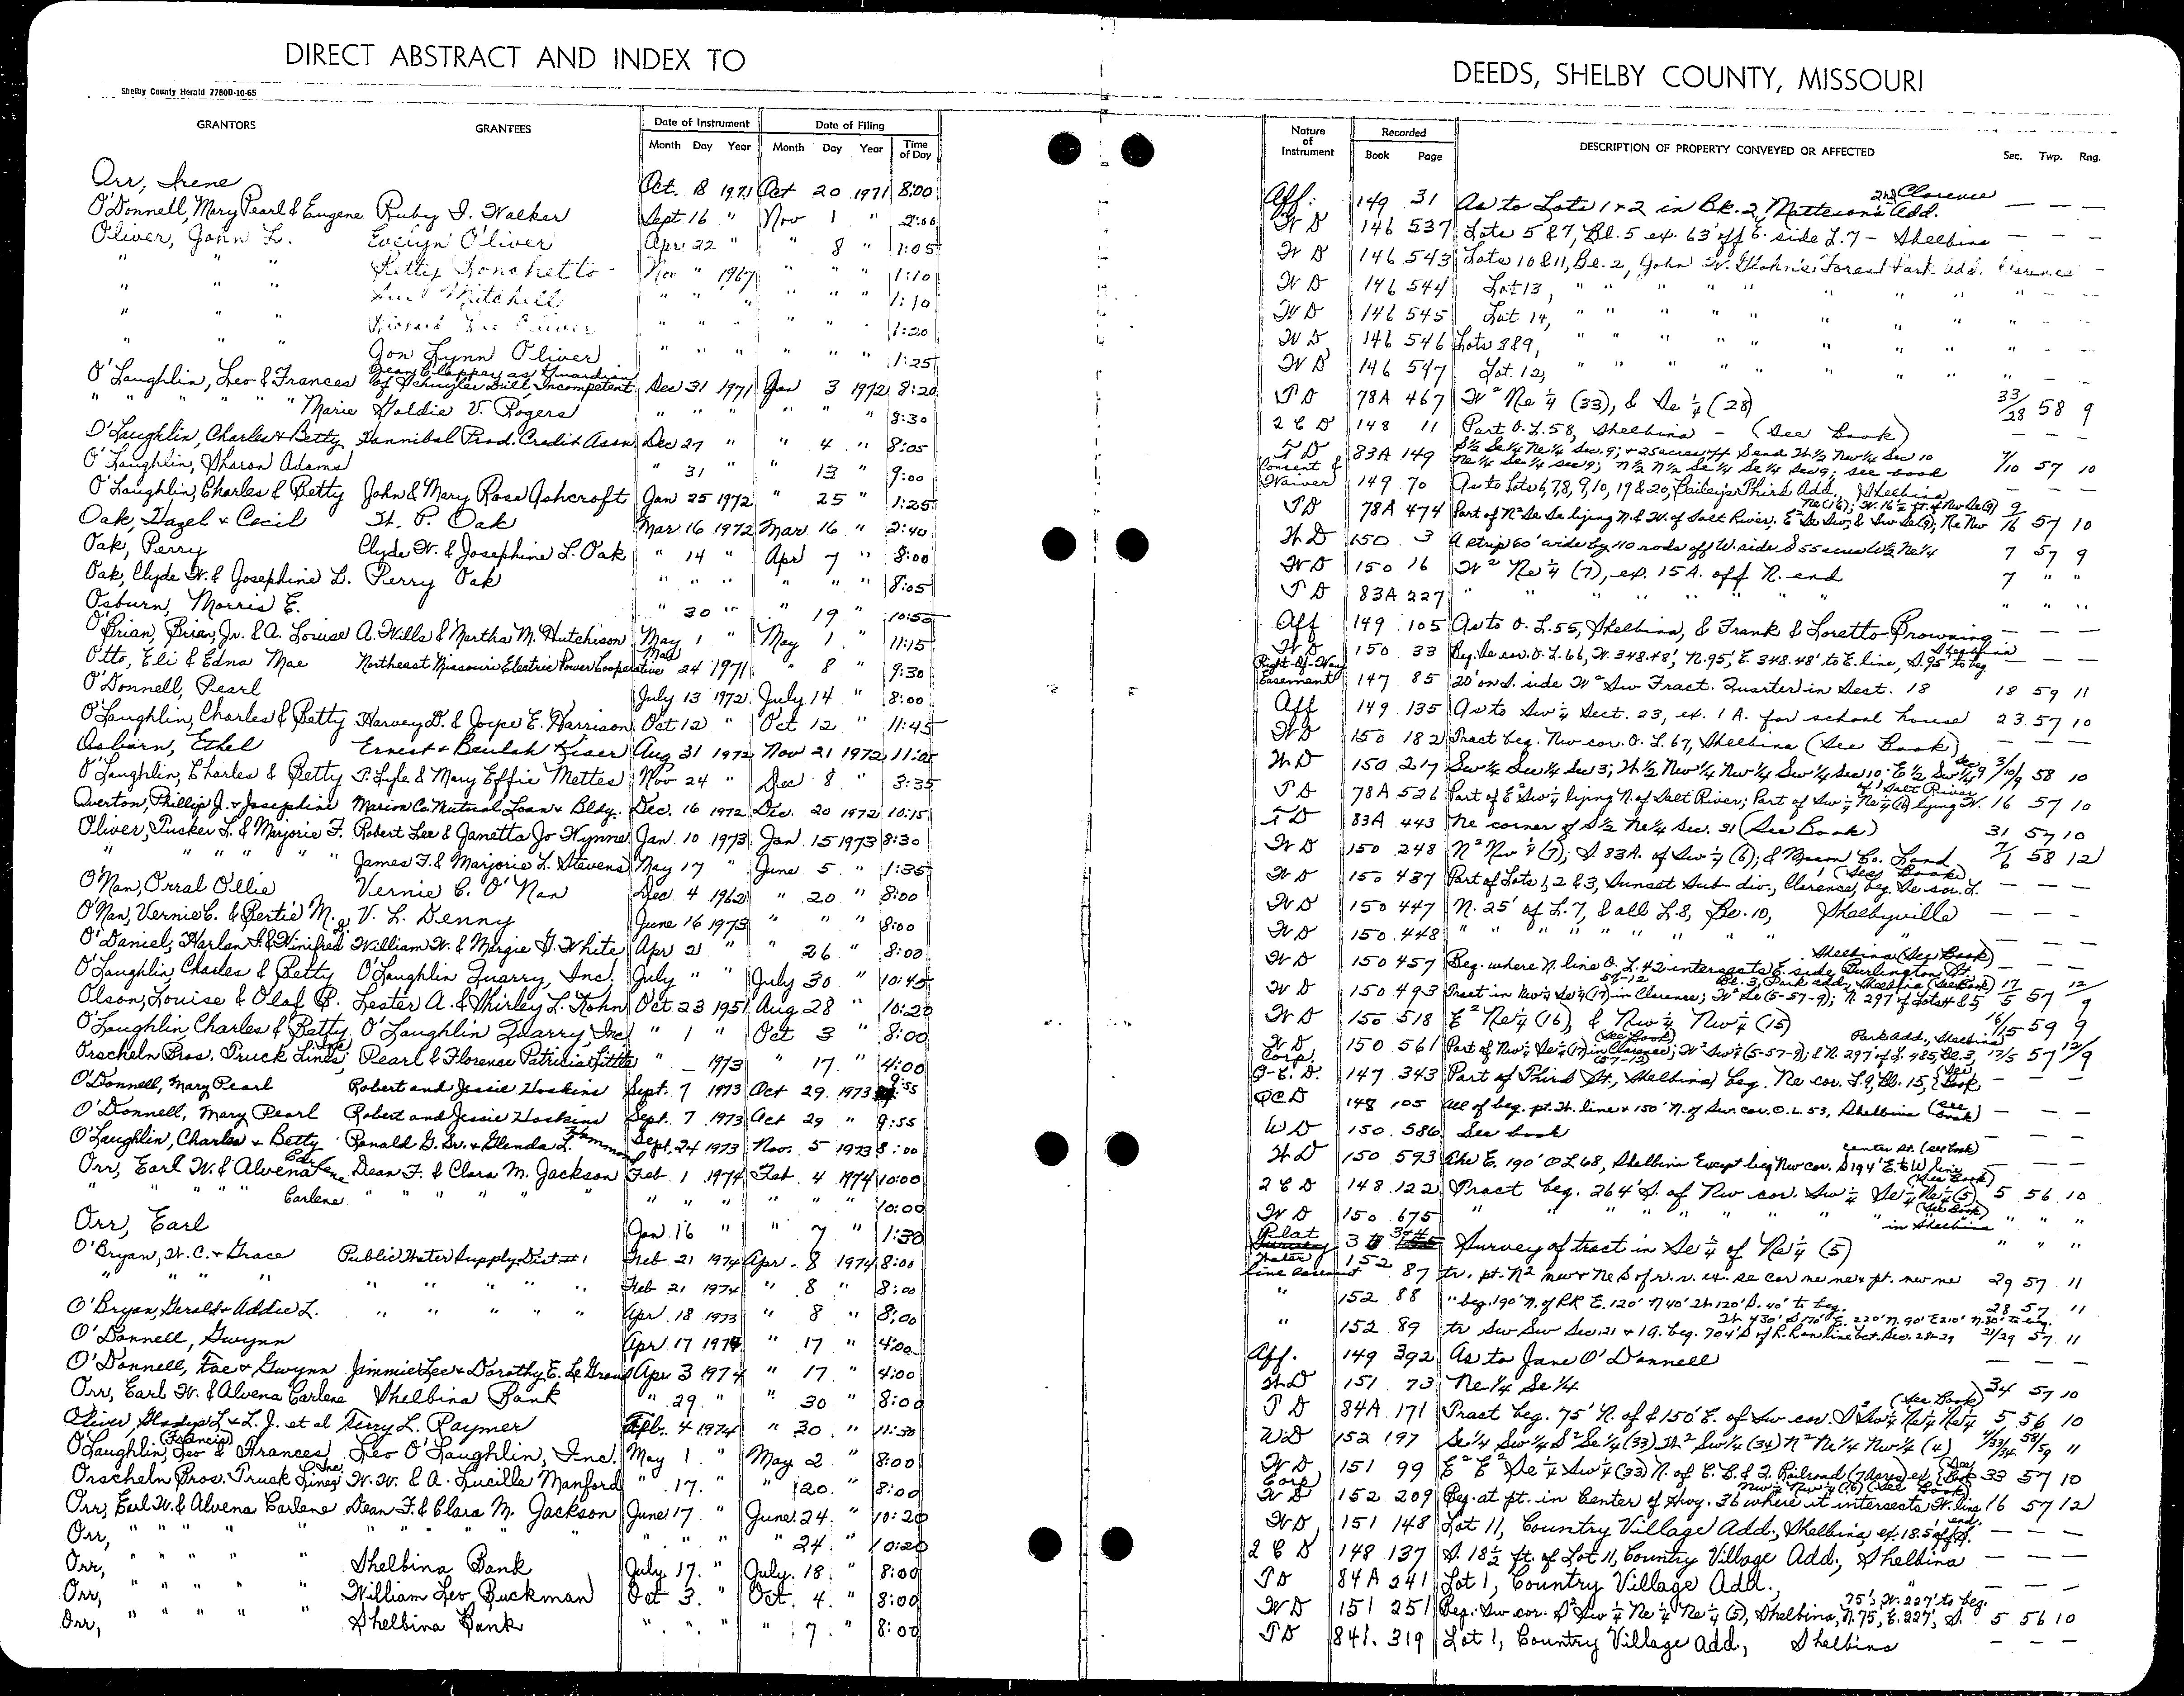 DIRECT ABSTRACT AND INDEX TO
DEEDS, SHELBY COUNTY, MISSOURI
Shelby County Herald 7780B-10-65
GRANTORS GRANTEES Date of Instrument Date of Filing
Month Day Year Month Day Year Time of Day
Nature of Instrument Recorded DESCRIPTION OF PROPERTY CONVEYED OR AFFECTED Sec. Twp. Rng.
Book Page
Orr, Irene Oct. 18 1971 Oct 20 1971 8:00 Aff. 149 31 As to Lots 1 & 2 in Bk. 2, Matteson's 2nd Add. Clarence — — —
O'Donnell, Mary Pearl & Eugene Ruby I. Walker Sept 16 " Nov 1 " 2:00 W D 146 537 Lots 5 & 7, Bl. 5 ex. 63' off E. side L. 7 - Shelbina — — —
Oliver, John L. Evelyn Oliver Apr 22 " " 8 " 1:05 W D 146 543 Lots 10 & 11, Bl. 2, John W. Forest Park Add. Clarence -
" " " Betty Ronchetto Nov " 1967 " " " 1:10 W D 146 544 Lot 13, " " " " " " " - -
" " " Mitchell " " " " " " 1:10 W D 146 545 Lot 14, " " " " " " "
" " " Richard Oliver " " " " " " 1:20 W D 146 546 Lots 8 & 9, " " " " " " "
" " " Jon Lynn Oliver " " " " " " 1:25 W D 146 547 Lot 12, " " " " " " "
O'Laughlin, Leo & Frances Jean Clapper as Guardian of Schuyler Dill, Incompetent Dec 31 1971 Jan 3 1972 8:20 T D 78A 467 W² Ne ¼ (33), & Se ¼ (28) 33/28 58 9
" " " " " Marie Goldie V. Rogers " " " " " " 8:30 2 C D 148 11 Part O. L. 58, Shelbina - (See Book) — — —
O'Laughlin, Charles & Betty Hannibal Prod. Credit Assn. Dec 27 " " 4 " 8:05 T D 83A 149 S½ Se¼ Ne¼ Sec. 9; & 25 acres off S end W½ Nw¼ Sec 10 Ne¼ Se¼ Sec 9; N½ N½ Se¼ Se¼ Sec 9; see book 9/10 57 10
O'Laughlin, Sharon Adams " 31 " 13 " 9:00 Consent & Waiver 149 70 As to Lots 6, 7, 8, 9, 10, 19 & 20, Bailey's Third Add., Shelbina — — —
O'Laughlin, Charles & Betty John & Mary Rose Ashcroft Jan 25 1972 " 25 " 1:25 T D 78A 474 Part of N² Se Se lying N. & W. of Salt River; E² Se Sw; & Sw Se (9); Ne Nw Ne (16); W. 16½ ft. of Nw Se (9) 9/16 57 10
Oak, Hazel & Cecil H. P. Oak Mar 16 1972 Mar 16 " 2:40 W D 150 3 A strip 60' wide by 110 rods off W. side S 55 acres W½ Ne¼ 7 57 9
Oak, Perry Clyde W. & Josephine L. Oak " 14 " Apr 7 " 8:00 W D 150 16 W² Ne ¼ (7), ex. 15 A. off N. end 7 " "
Oak, Clyde W. & Josephine L. Perry Oak " " " " " " 8:05 T D 83A 227 " " " " " " " " "
Osburn, Morris E. " 30 " " 19 " 10:55 Aff 149 105 As to O. L. 55, Shelbina, & Frank & Loretto Browning — — —
O'Brian, Brian, Jr. & A. Louise A. Wills & Martha M. Hutchison May 1 " May 1 " 11:15 W D 150 33 Beg. Se cor. O. L. 66, W. 348.48', N. 95', E. 348.48' to E. line, S. 95' to beg. Shelbina — — —
Otto, Eli & Edna Mae Northeast Missouri Electric Power Cooperative May 24 1971 " 8 " 9:30 Right-Of-Way Easement 147 85 20' on S. side W² Sw Fract. Quarter in Sect. 18 18 59 11
O'Donnell, Pearl July 13 1972 July 14 " 8:00 Aff 149 135 As to Sw ¼ Sect. 23, ex. 1 A. for school house 23 57 10
O'Laughlin, Charles & Betty Harvey D. & Joyce E. Harrison Oct 12 " Oct 12 " 11:45 W D 150 182 Tract beg. Nw cor. O. L. 67, Shelbina (See Book) — — —
Osborn, Ethel Ernest & Beulah Kiser Aug 31 1972 Nov 21 1972 11:05 W D 150 217 Sw¼ Sw¼ Sec 3; W½ Nw¼ Nw¼ Sw¼ Sec 10; E½ Sw¼ Sec 9 3/10/9 58 10
O'Laughlin, Charles & Betty T. Lyle & Mary Effie Mettes Nov 24 " Dec 8 " 3:35 T D 78A 526 Part of E² Sw ¼ lying N. of Salt River; Part of Sw ¼ Ne ¼ (16) lying W. of Salt River 16 57 10
Overton, Phillip J. & Josephine Marion Co. Mutual Loan & Bldg. Dec. 16 1972 Dec. 20 1972 10:15 T D 83A 443 Ne corner of S½ Ne¼ Sec. 31 (See Book) 31 57 10
Oliver, Tusker L. & Marjorie F. Robert Lee & Janetta Jo Wynne Jan. 10 1973 Jan. 15 1973 8:30 W D 150 248 N² Nw ¼ (7); S. 83A. of Sw ¼ (6); & Macon Co. Land (See Book) 7/6 58 12
" " " " " James F. & Marjorie L. Stevens May 17 " June 5 " 1:35 W D 150 437 Part of Lots 1, 2 & 3, Sunset Sub-div., Clarence, beg. Se cor. L. 1 — — —
O'Nan, Orral Ollie Vernie C. O'Nan Dec 4 1962 " 20 " 8:00 W D 150 447 N. 25' of L. 7, & all L. 8, Bl. 10, Shelbyville — — —
O'Nan, Vernie C. & Bertie M. V. L. Denny June 16 1973 " " " 8:00 W D 150 448 " " " " " " " — — —
O'Daniel, Harlan I. & Winifred William W. & Margie G. White Apr 21 " " 26 " 8:00 W D 150 457 Beg. where N. line O. L. 42 intersects E. side Burlington St. Shelbina (See Book) — — —
O'Laughlin, Charles & Betty O'Laughlin Quarry, Inc. July " " July 30 " 10:45 W D 150 493 Tract in Nw¼ Se¼ (17) 57-12 in Clarence; W² Se (5-57-9); N. 297' of Lots 4 & 5, Bl. 3, Park add., Shelbina (See Book) 17/5 57 12/9
Olson, Louise & Olaf B. Lester A. & Shirley L. Kohn Oct 23 1951 Aug 28 " 10:20 W D 150 518 E² Ne¼ (16), & Nw ¼ Nw ¼ (15) 16/15 59 9
O'Laughlin Charles & Betty O'Laughlin Quarry, Inc " 1 " Oct 3 " 8:00 W D 150 561 Part of Nw¼ Se¼ (17) (57-12) in Clarence; W² Sw¼ (5-57-9); & N. 297' of L. 4&5, Bl. 3, Park add., Shelbina (See Book) 17/5 57 12/9
Orscheln Bros. Truck Lines, Inc Pearl & Florence Patricia Little " — 1973 " 17 " 4:00 Corp Q-C. D. 147 343 Part of Third St., Shelbina, beg. Ne cor. L. 9, Bl. 15, (See Book — — —
O'Donnell, Mary Pearl Robert and Jessie Hoskins Sept. 7 1973 Oct 29 1973 9:55 QCD 148 105 All of beg. pt. W. line & 150' N. of Sw. cor. O. L. 53, Shelbina (see book) — — —
O'Donnell, Mary Pearl Robert and Jessie Hoskins Sept. 7 1973 Oct 29 " 9:55 WD 150 586 See book — — —
O'Laughlin, Charles & Betty Ronald G. Sr. & Glenda L. Hammond Sept. 24 1973 Nov. 5 1973 8:00 W D 150 593 The E. 190' O L 68, Shelbina Except beg Nw cor. S 194' E. to W line center St. (see book) — — —
Orr, Earl W. & Alvena Earlene Dean F. & Clara M. Jackson Feb 1 1974 Feb. 4 1974 10:00 2 C D 148 122 Tract beg. 264' S. of Nw cor. Sw ¼ Se ¼ Ne ¼ (5) (See Book) 5 56 10
" " " " Earlene " " " " " " " " " " " 10:00 W D 150 675 " " " " " " " (See Book) " " "
Orr, Earl Jan. 16 " " 7 " 1:30 Plat 3 344 Survey of tract in Se ¼ of Ne ¼ (5) in Shelbina " " "
O'Bryan, W. C. & Grace Public Water Supply Dist #1 Feb 21 1974 Apr. 8 1974 8:00 Water line easement 152 87 tr. pt. N² nw & Ne S of r. r. ex. se cor ne ne & pt. nw ne 29 57 11
" " " " " " " " Feb 21 1974 " 8 " 8:00 " 152 88 " beg. 190' N. of RR E. 120' N 40' W 120' S. 40' to beg. 28 57 11
O'Bryan, Gerald & Addie L. " " " " " Apr 18 1973 " 8 " 8:00 " 152 89 tr Sw Sw Sec. 21 & 1A. beg. 704' S of R. R on line bet. Sec. 28-29 W 430' S 170' E. 220' N. 90' E 210' N. 80' to beg. 21/29 57 11
O'Donnell, Gwynn Apr 17 1974 " 17 " 4:00 Aff. 149 392 As to Jane O'Donnell — — —
O'Donnell, Fae & Gwynn Jimmie Lee & Dorothy E. LeGrand Apr 3 1974 " 17 " 4:00 W D 151 73 Ne ¼ Se ¼ 34 57 10
Orr, Earl W. & Alvena Earlene Shelbina Bank " 29 " " 30 " 8:00 T D 84A 171 Tract beg. 75' N. of & 150' E. of Sw cor. S² Sw¼ Ne¼ Ne¼ (See Book) 5 56 10
Oliver, Gladys L. & L. J. et al Terry L. Raymer Feb. 4 1974 " 30 " 11:30 WD 152 197 Se¼ Sw¼ S² Se¼ (33) W² Sw¼ (34) N² Ne¼ Nw¼ (4) 4/33/34 58/59 11
O'Laughlin, Leo (Francis) & Frances Leo O'Laughlin, Inc. May 1 " May 2 " 8:00 W D 151 99 E² E² Se ¼ Sw ¼ (33) N. of C. B. & Q. Railroad (7 Acres) ex. (See Book 33 57 10
Orscheln Bros. Truck Lines Inc. W. W. & A. Lucille Manford " 17 " " 20 " 8:00 Corp W D 152 209 Beg. at pt. in Center of Hwy. 36 where it intersects W. line Nw¼ Nw¼ (16) (See Book) 16 57 12
Orr, Earl W. & Alvena Earlene Dean F. & Clara M. Jackson June 17 " June 24 " 10:20 W D 151 148 Lot 11, Country Village Add., Shelbina, ex. 18.5' off S. end. — — —
Orr, " " " " " " " " " " " " " 24 " 10:20 2 C D 148 137 S. 18½ ft. of Lot 11, Country Village Add., Shelbina — — —
Orr, " " " " Shelbina Bank July 17 " July 18 " 8:00 T D 84A 241 Lot 1, Country Village Add., " — — —
Orr, " " " " William Leo Buckman Oct. 3 " Oct. 4 " 8:00 W D 151 251 Beg. Sw cor. S² Sw ¼ Ne ¼ Ne ¼ (5), Shelbina, N. 75, E. 227', S. 75', W. 227' to beg. 5 56 10
Orr, " " " " Shelbina Bank " " " " 7 " 8:00 T D 841. 319 Lot 1, Country Village Add, Shelbina — — —